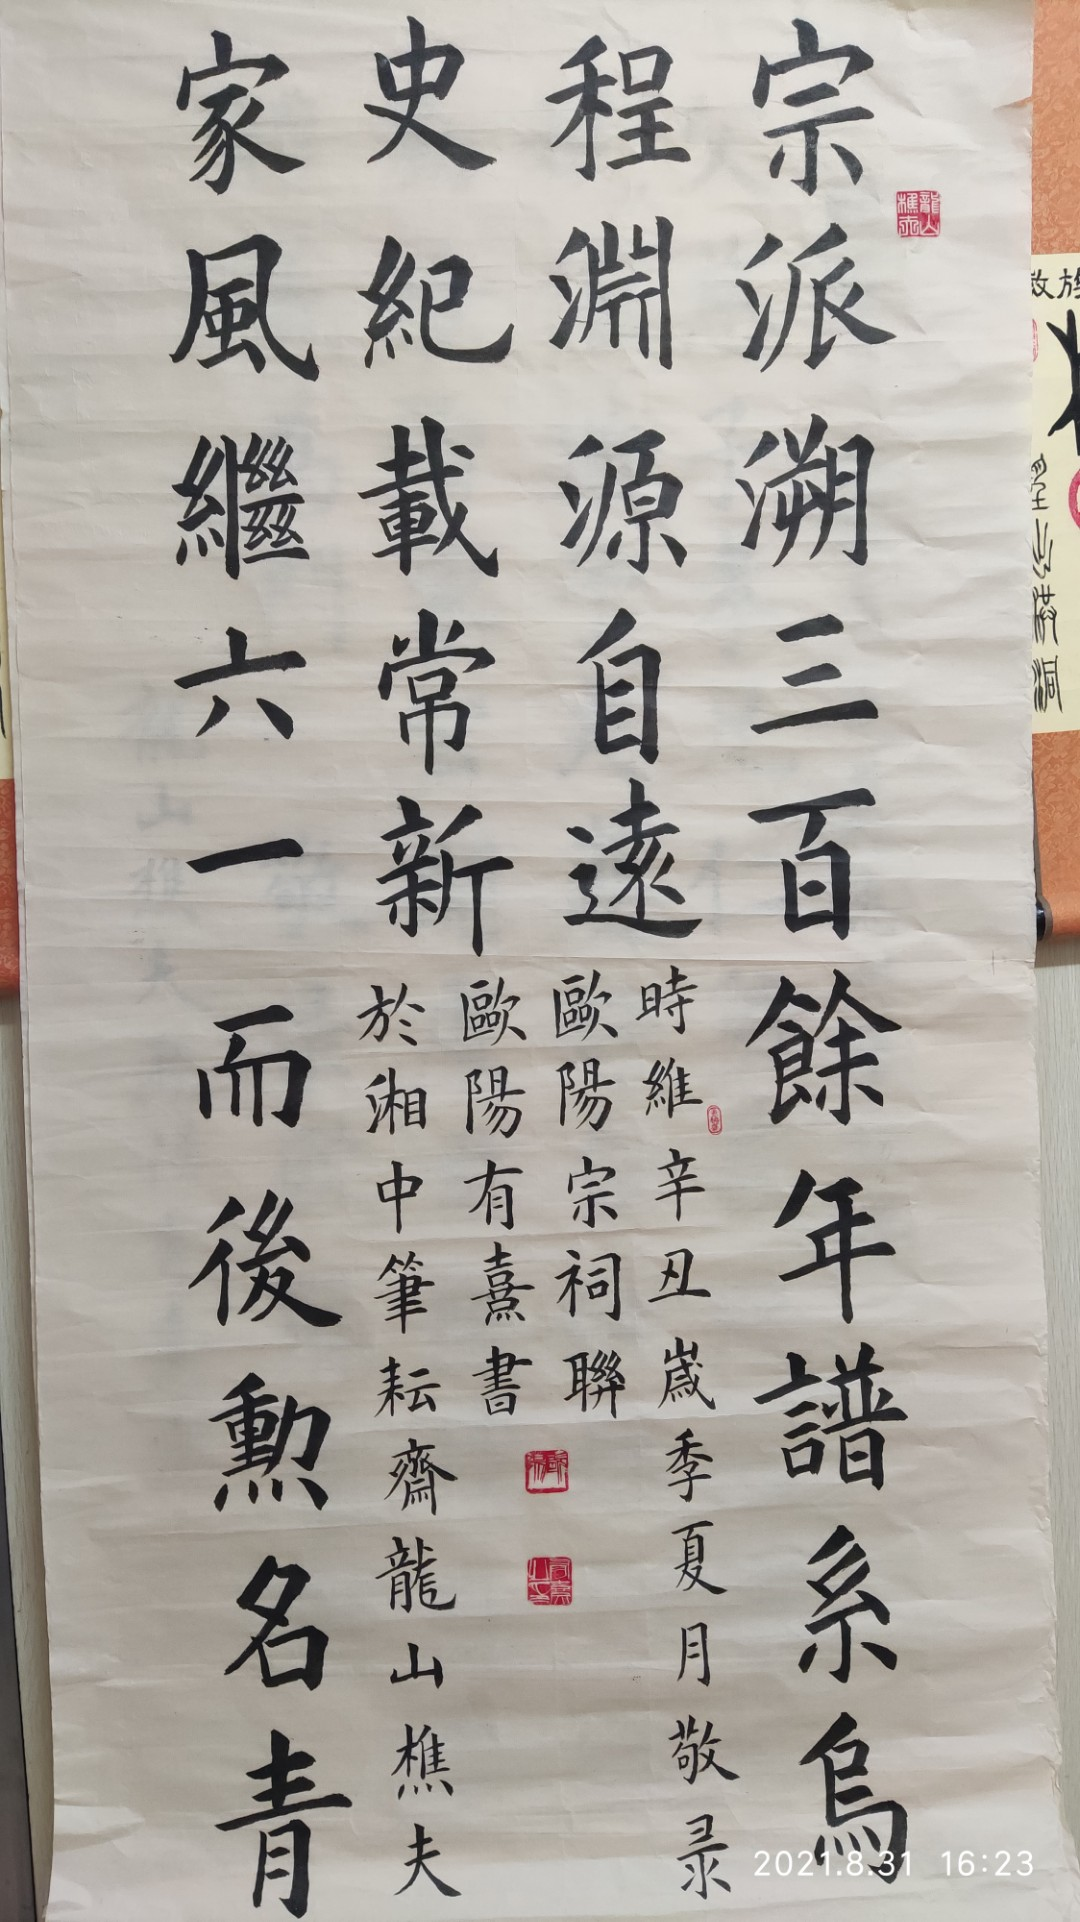 宗派溯三百餘年譜系烏
程淵源自遠
家風繼六一而後勳名青
史紀載常新
時維辛丑歲季夏月敬录
歐陽宗祠聯
歐陽有熹書
於湘中筆耘齋龍山樵夫
龍山樵夫
2021.8.31 16:23